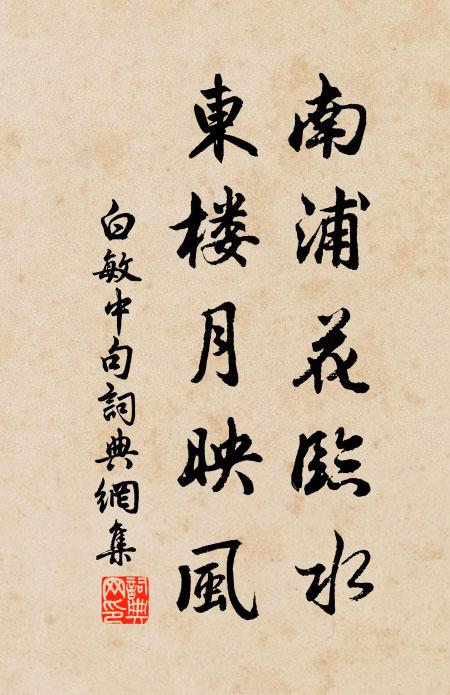 南浦花臨水
東楼月映風
白敏中句詞典網集
詞典
网印